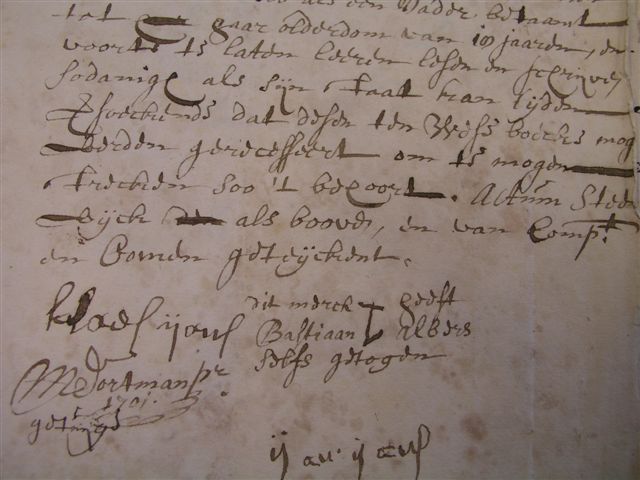 als een Vader betaent
tot haar olderdom van 18 jaaren, en
voorts te laten leeren lesen en schrijven
sodanigh als sijn staat kan lijden
Versoeckende dat desen ten Wess boecks mog
werden geregessert om te mogen
strecken soo 't behoort. Actum Steen
wijck als boove, en van Comp.t
en Bomen geteijckent.
klaes ijans
dit merck heeft
Bastiaan Albers
selfs getogen
M Dortman pr
1701.
getuige
ij an ij ans